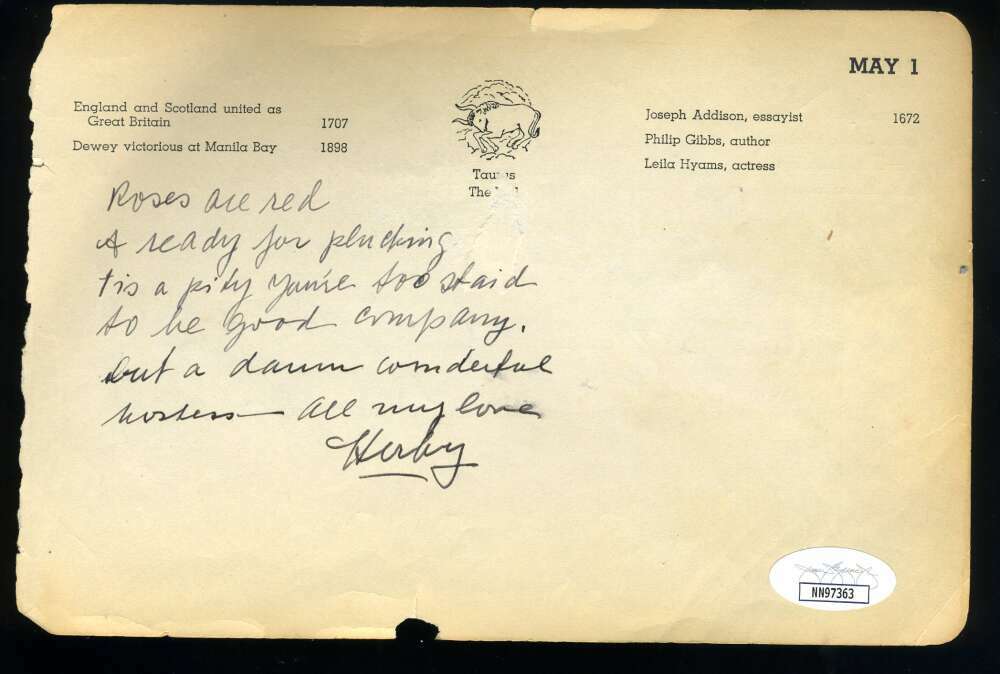 MAY 1
England and Scotland united as
Great Britain 1707
Dewey victorious at Manila Bay 1898
Taurus
The
Joseph Addison, essayist 1672
Philip Gibbs, author
Leila Hyams, actress
Roses are red
& ready for plucking
'tis a pity you're too staid
to be good company.
but a damn wonderful
hostess — All my love
Herby
NN97363